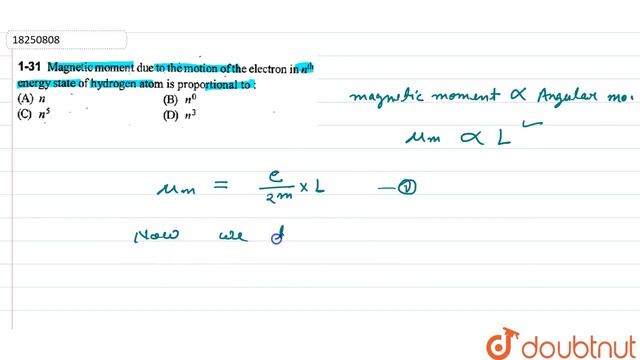 18250808
1-31 Magnetic moment due to the motion of the electron in nth
energy state of hydrogen atom is proportional to :
(A) n (B) n⁰
(C) n⁵ (D) n³
magnetic moment ∝ Angular mo.
μm ∝ L ✓
μm = e/2m × L —①
Now we d
doubtnut